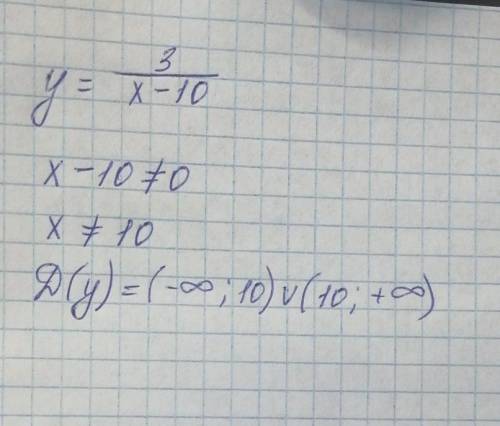 y = 3/(x-10)
x-10≠0
x ≠ 10
D(y)=(-∞;10)∪(10;+∞)